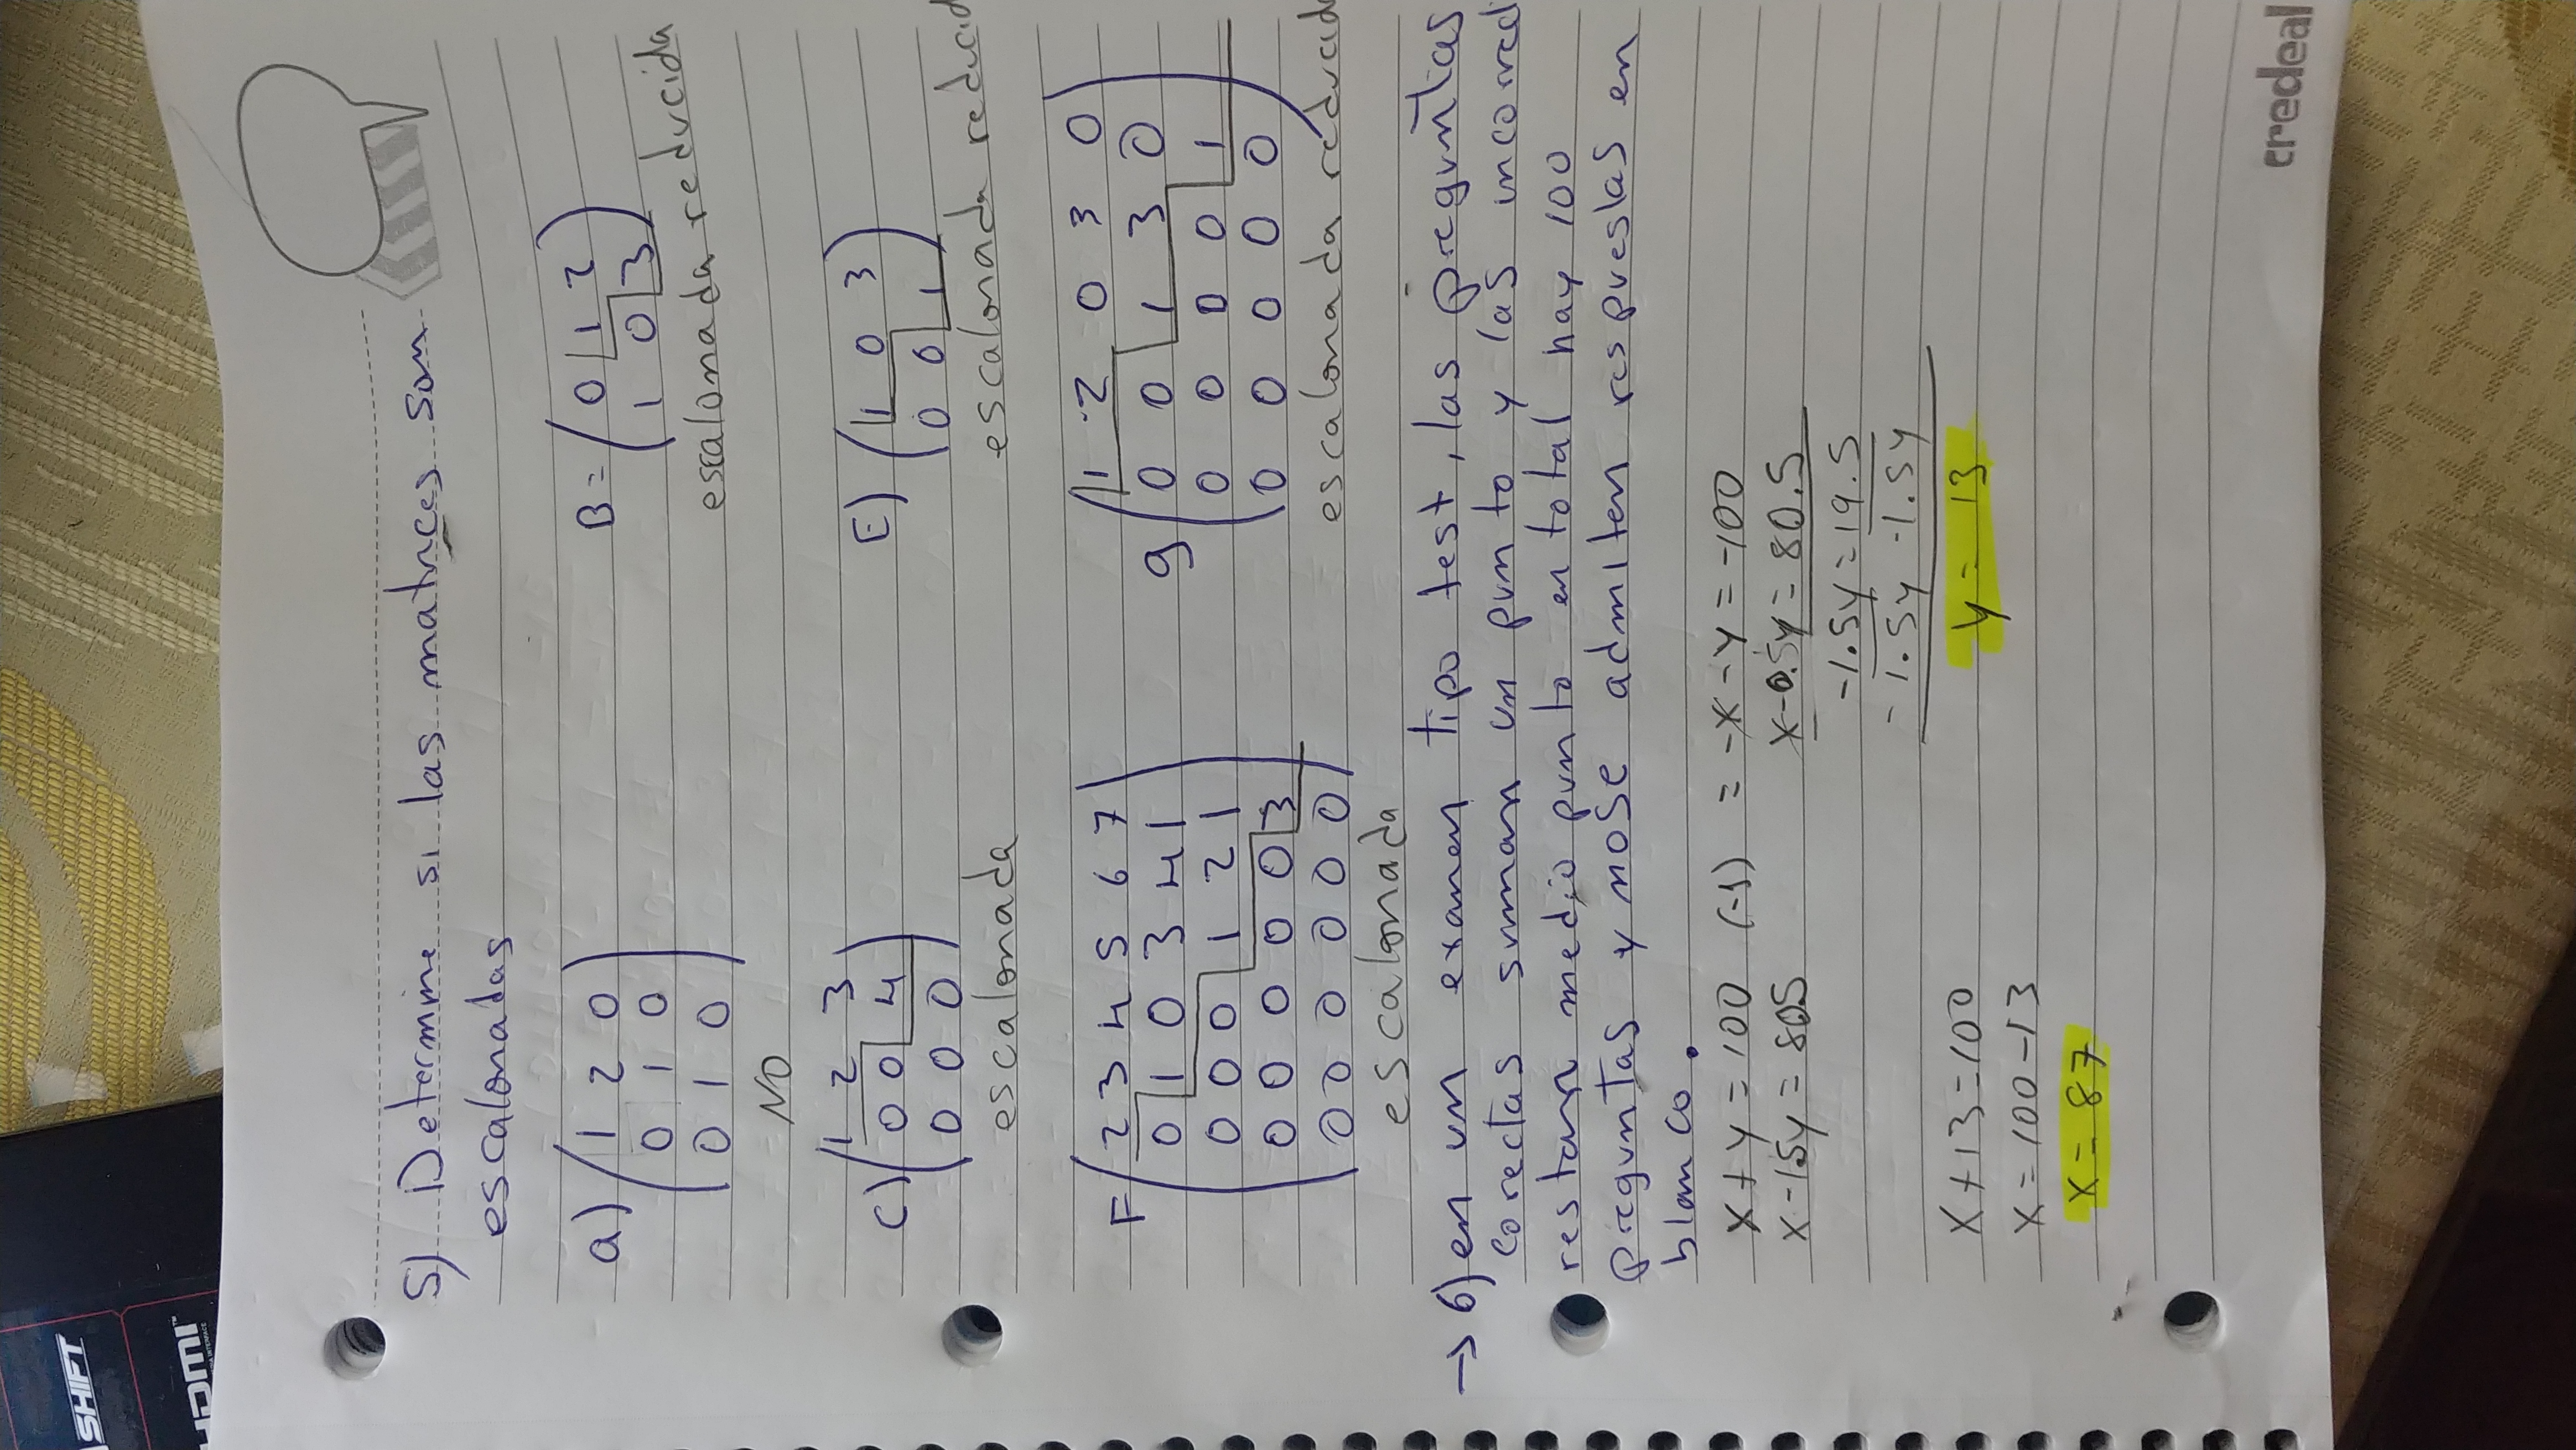 SHIFT
HDMI™
5) Determine si las matrices son
escalonadas
a) (1 2 0)
(0 1 0)
(0 1 0)
NO
B = (0 1 2)
(1 0 3)
escalonada reducida
C) (1 2 3)
(0 0 4)
(0 0 0)
escalonada
E) (1 0 3)
(0 0 1)
escalonada reducid
F (2 3 4 5 6 7)
(0 1 0 3 4 1)
(0 0 0 1 2 1)
(0 0 0 0 0 3)
(0 0 0 0 0 0)
escalonada
g (1 -2 0 3 0)
(0 0 1 3 0)
(0 0 0 0 1)
(0 0 0 0 0)
escalonada reducid
→ 6) en un examen tipo test, las preguntas
corectas suman un punto y las incorrect
restan medio punto en total hay 100
preguntas y nose admiten respuestas en
blanco.
x + y = 100 (-1) = -x - y = -100
x - 1.5y = 80.5
x - 0.5y = 80.5
-1.5y = 19.5
-1.5y -1.5y
y = 13
x + 13 = 100
x = 100 - 13
x = 87
credeal